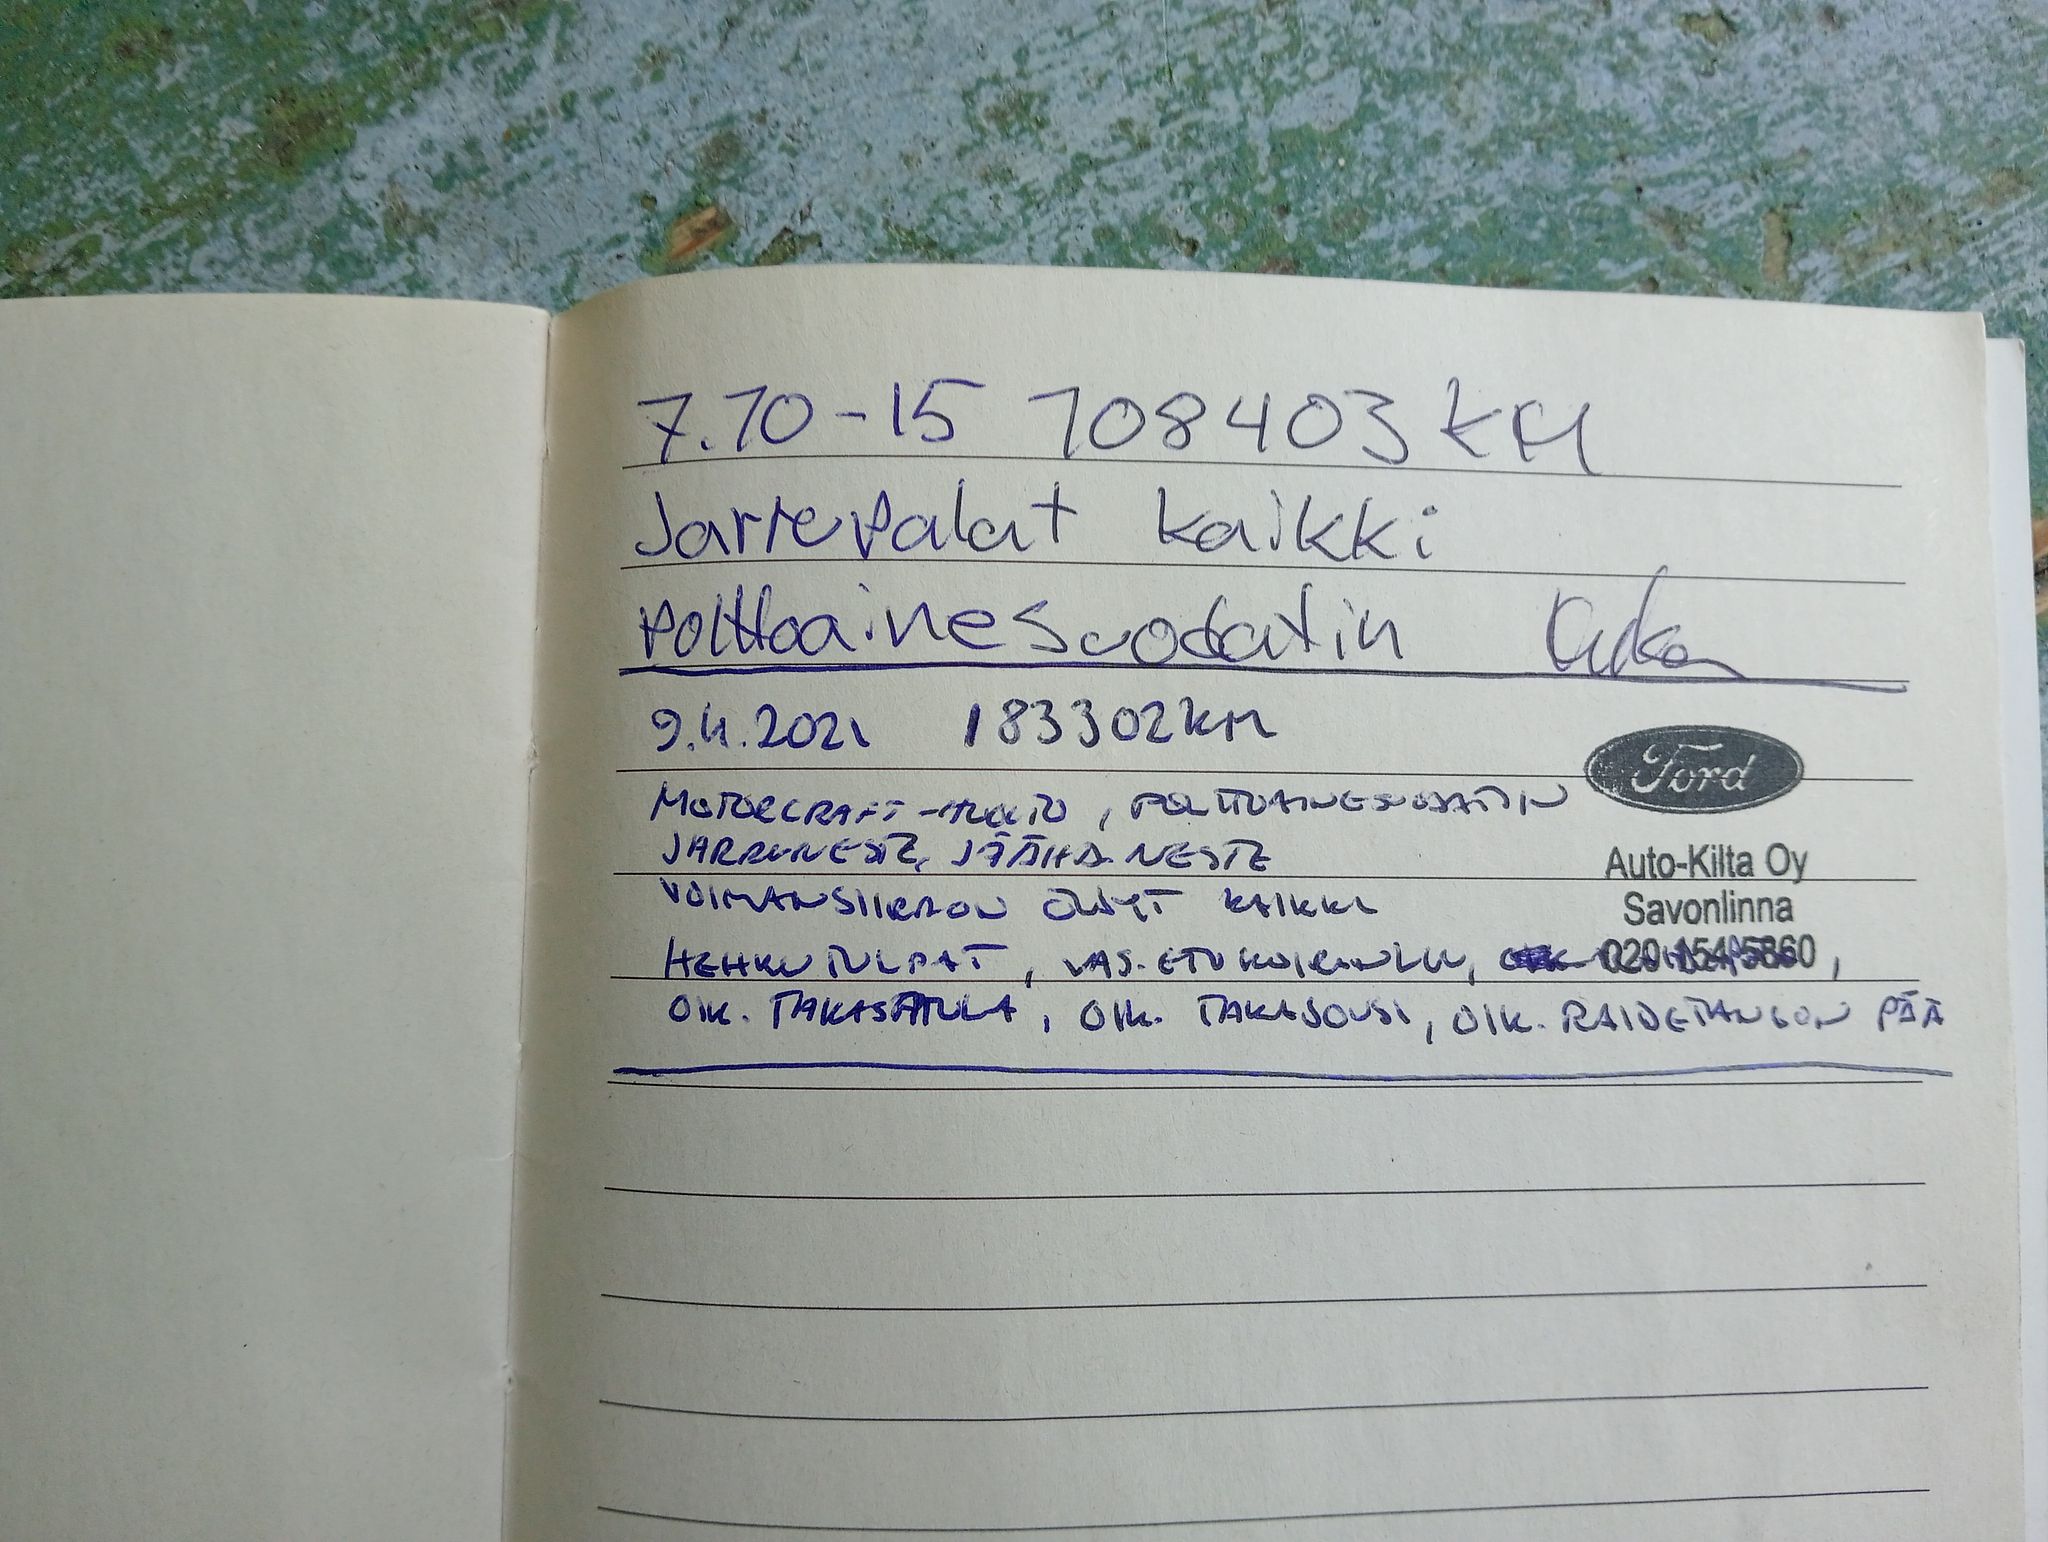 7.10-15 108403 KM
Jarrupalat kaikki
polttoainesuodatin
9.4.2021 183302 KM
Ford
MOTORCRAFT-HUOLTO, POLTTOAINESUODATIN
JARRUNESTE, JÄÄHD.NESTE
Auto-Kilta Oy
VOIMANSIIRRON ÖLJYT KAIKKI
Savonlinna
HEHKUTULPAT, VAS. ETUKOIRANLUU,
020 1545860
OIK. TAKASATULA, OIK. TAKAJOUSI, OIK. RAIDETANGON PÄÄ